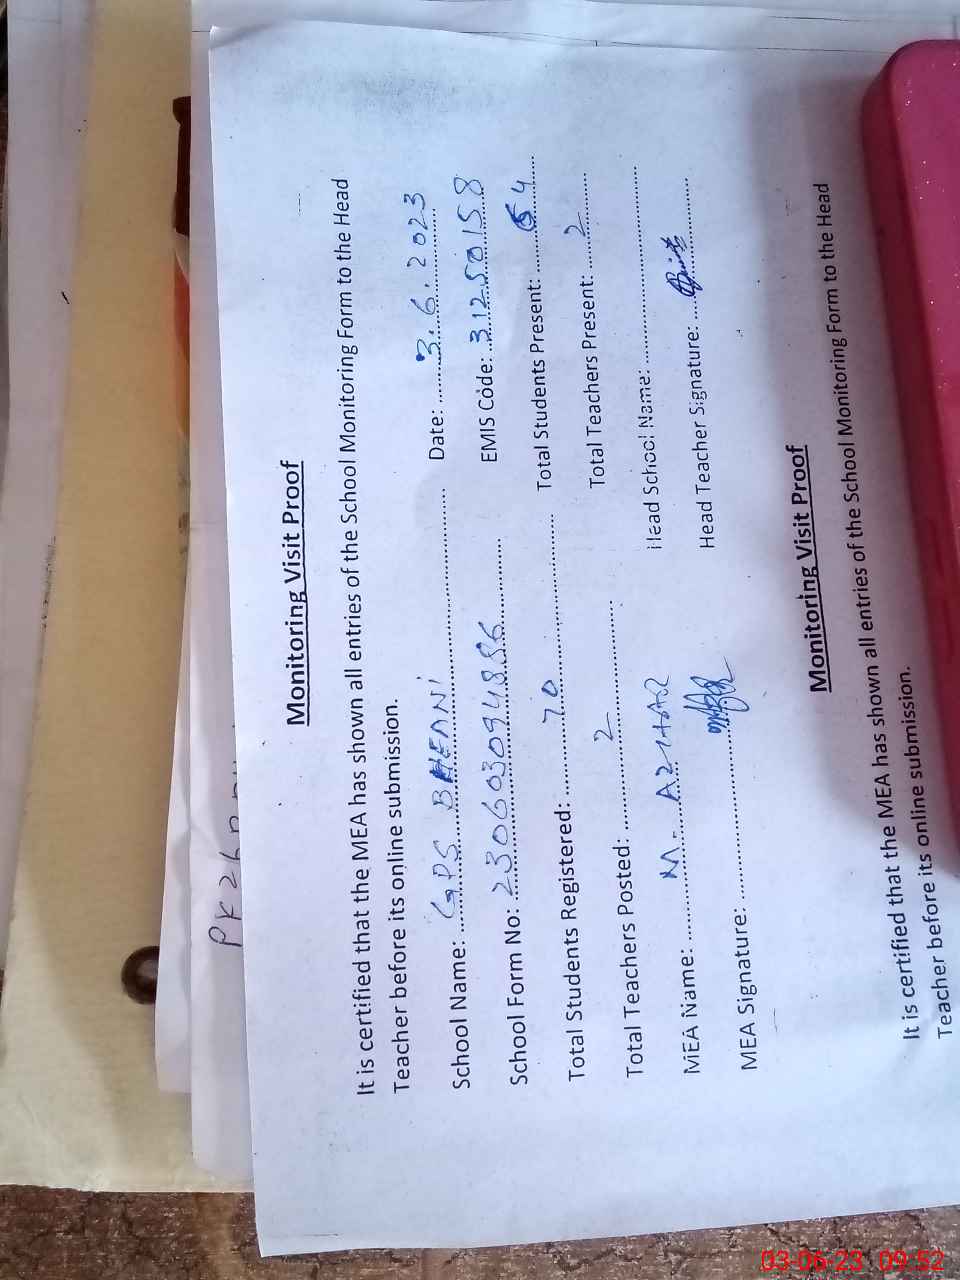 PK26
Monitoring Visit Proof
It is certified that the MEA has shown all entries of the School Monitoring Form to the Head
Teacher before its online submission.
School Name: GPS BHEANI Date: 3.6.2023
School Form No: 230603094886 EMIS Code: 31250158
Total Students Registered: 70 Total Students Present: 64
Total Teachers Posted: 2 Total Teachers Present: 2
MEA Name: M. AZHAR Head School Name:
MEA Signature: Head Teacher Signature:
Monitoring Visit Proof
It is certified that the MEA has shown all entries of the School Monitoring Form to the Head
Teacher before its online submission.
03-06-23 09:52